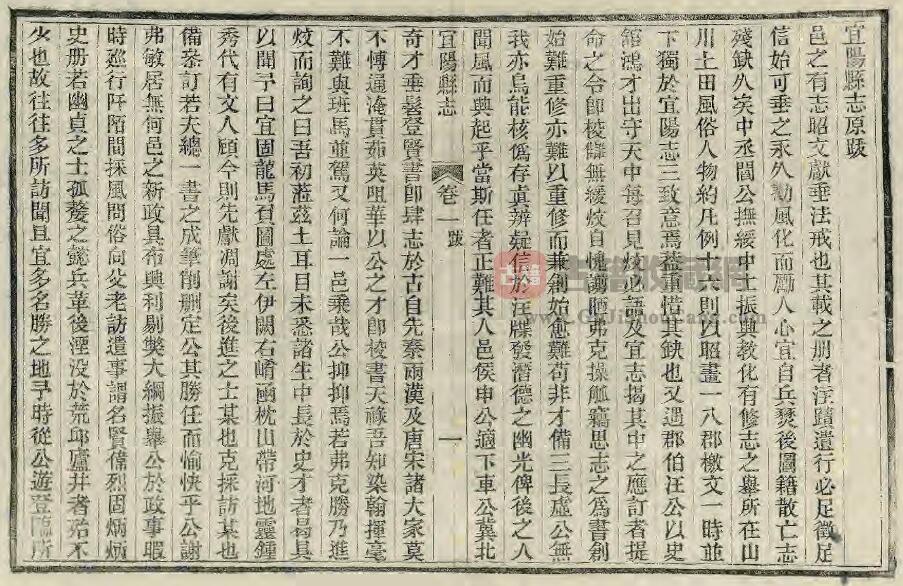 宜陽縣志原跋
邑之有志昭文獻垂法戒也其載之册者往蹟遺行必足徵足
信始可垂之永久勸風化而勵人心宜自兵燹後圖籍散亡志
殘缺久矣中丞閻公撫綏中土振興教化有修志之舉所在山
川土田風俗人物約凡例十七則以昭畫一八郡檄文一時並
下獨於宜陽志三致意焉蓋重惜其缺也又遇郡伯汪公以史
舘鴻才出守天中每召見炆必語及宜志揭其中之應訂者提
命之令卽梭讎無緩炆自愧謭陋弗克操觚竊思志之爲書創
始難重修亦難以重修而兼創始愈難苟非才備三長虛公無
我亦烏能核僞存眞辨疑信於往牒發潛德之幽光俾後之人
聞風而興起乎當斯任者正難其人邑侯申公適下車公冀北
宜陽縣志
卷一
跋
一
奇才垂髫登賢書卽肆志於古自先秦兩漢及唐宋諸大家莫
不愽通淹貫茹英咀華以公之才卽梭書天祿吾知染翰揮毫
不難與班馬並駕又何論一邑乘哉公抑抑焉若弗克勝乃進
炆而詢之曰吾初蒞茲土耳目未悉諸生中長於史才者曷具
以聞予曰宜固龍馬召圖處左伊闕右崤凾枕山帶河地靈鍾
秀代有文人顧今則先獻凋謝矣後進之士某也克採訪某也
備叅訂若夫總一書之成筆削刪定公其勝任而愉快乎公謝
弗敏居無何邑之新政具布興利剔獘大綱振舉公於政事暇
時廵行阡陌間採風問俗向父老訪遺事謂名賢偉烈固炳炳
史册若幽貞之士孤嫠之懿兵革後湮没於荒邱廬井者殆不
少也故往往多所訪聞且宜多名勝之地予時從公遊登臨所
古籍
古籍收藏網
www.GuJiShouCang.com